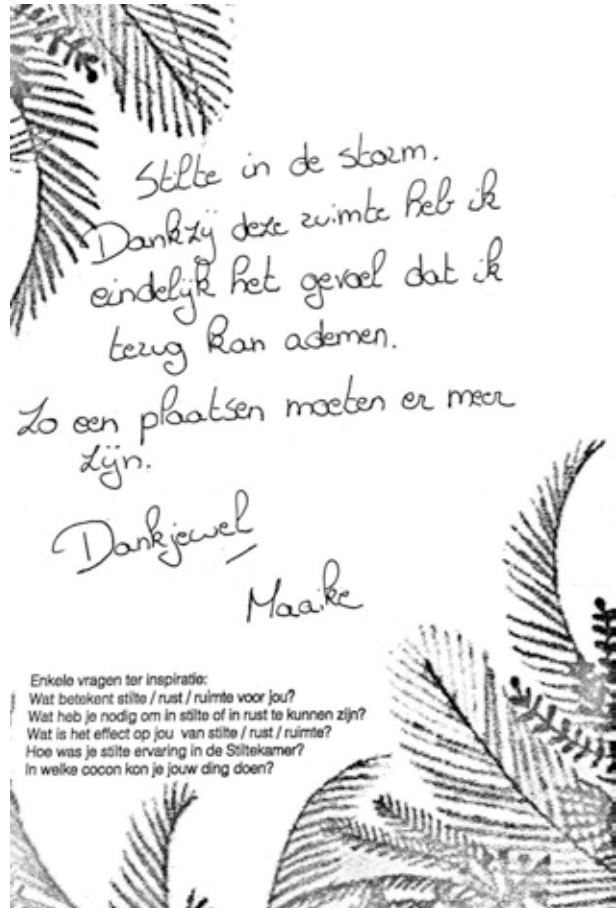 Stilte in de storm.
Dankzij deze ruimte heb ik
eindelijk het gevoel dat ik
terug kan ademen.
Zo een plaatsen moeten er meer
zijn.
Dankjewel
Maaike
Enkele vragen ter inspiratie:
Wat betekent stilte / rust / ruimte voor jou?
Wat heb je nodig om in stilte of in rust te kunnen zijn?
Wat is het effect op jou van stilte / rust / ruimte?
Hoe was je stilte ervaring in de Stiltekamer?
In welke cocon kon je jouw ding doen?